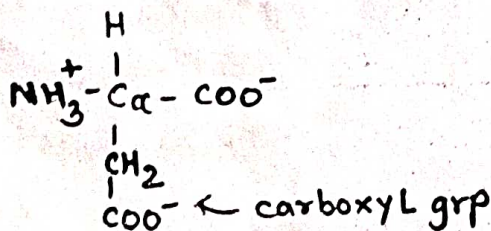 H
NH₃⁺-Cα-COO⁻
CH₂
COO⁻ ← carboxyL grp